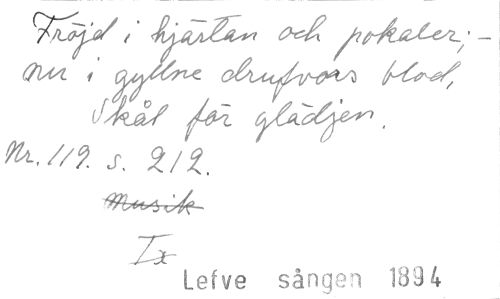 Fröjd i hjärtan och pokaler; –
nu i gyllne drufvors blod,
Skål för glädjen.
Nr. 119. s. 212.
Musik
Tx
Lefve sången 1894